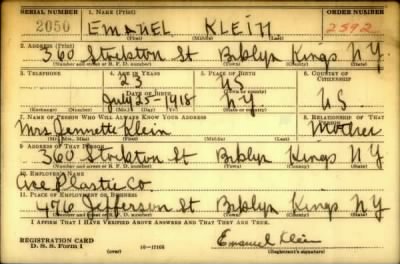 SERIAL NUMBER 1. NAME (Print) ORDER NUMBER
2050 EMANUEL KLEIN 2592
(First) (Middle) (Last)
2. ADDRESS (Print)
360 Stockton St Bklyn Kings N.Y.
(Number and street or R. F. D. number) (Town) (County) (State)
3. TELEPHONE 4. AGE IN YEARS 5. PLACE OF BIRTH 6. COUNTRY OF CITIZENSHIP
23 US
DATE OF BIRTH (Town or county)
July 25-1918 N.Y. U.S.
(Exchange) (Number) (Mo.) (Day) (Yr.) (State or country)
7. NAME OF PERSON WHO WILL ALWAYS KNOW YOUR ADDRESS 8. RELATIONSHIP OF THAT PERSON
Mrs Jennette Klein Mother
(Mr., Mrs., Miss) (First) (Middle) (Last)
9. ADDRESS OF THAT PERSON
360 Stockton St Bklyn Kings N.Y
(Number and street or R. F. D. number) (Town) (County) (State)
10. EMPLOYER'S NAME
Plastic Co.
11. PLACE OF EMPLOYMENT OR BUSINESS
476 Jefferson St Bklyn Kings N.Y
(Number and street or R. F. D. number) (Town) (County) (State)
I AFFIRM THAT I HAVE VERIFIED ABOVE ANSWERS AND THAT THEY ARE TRUE.
REGISTRATION CARD
D. S. S. Form 1 (over) 16-17105 Emanuel Klein
(Registrant's signature)